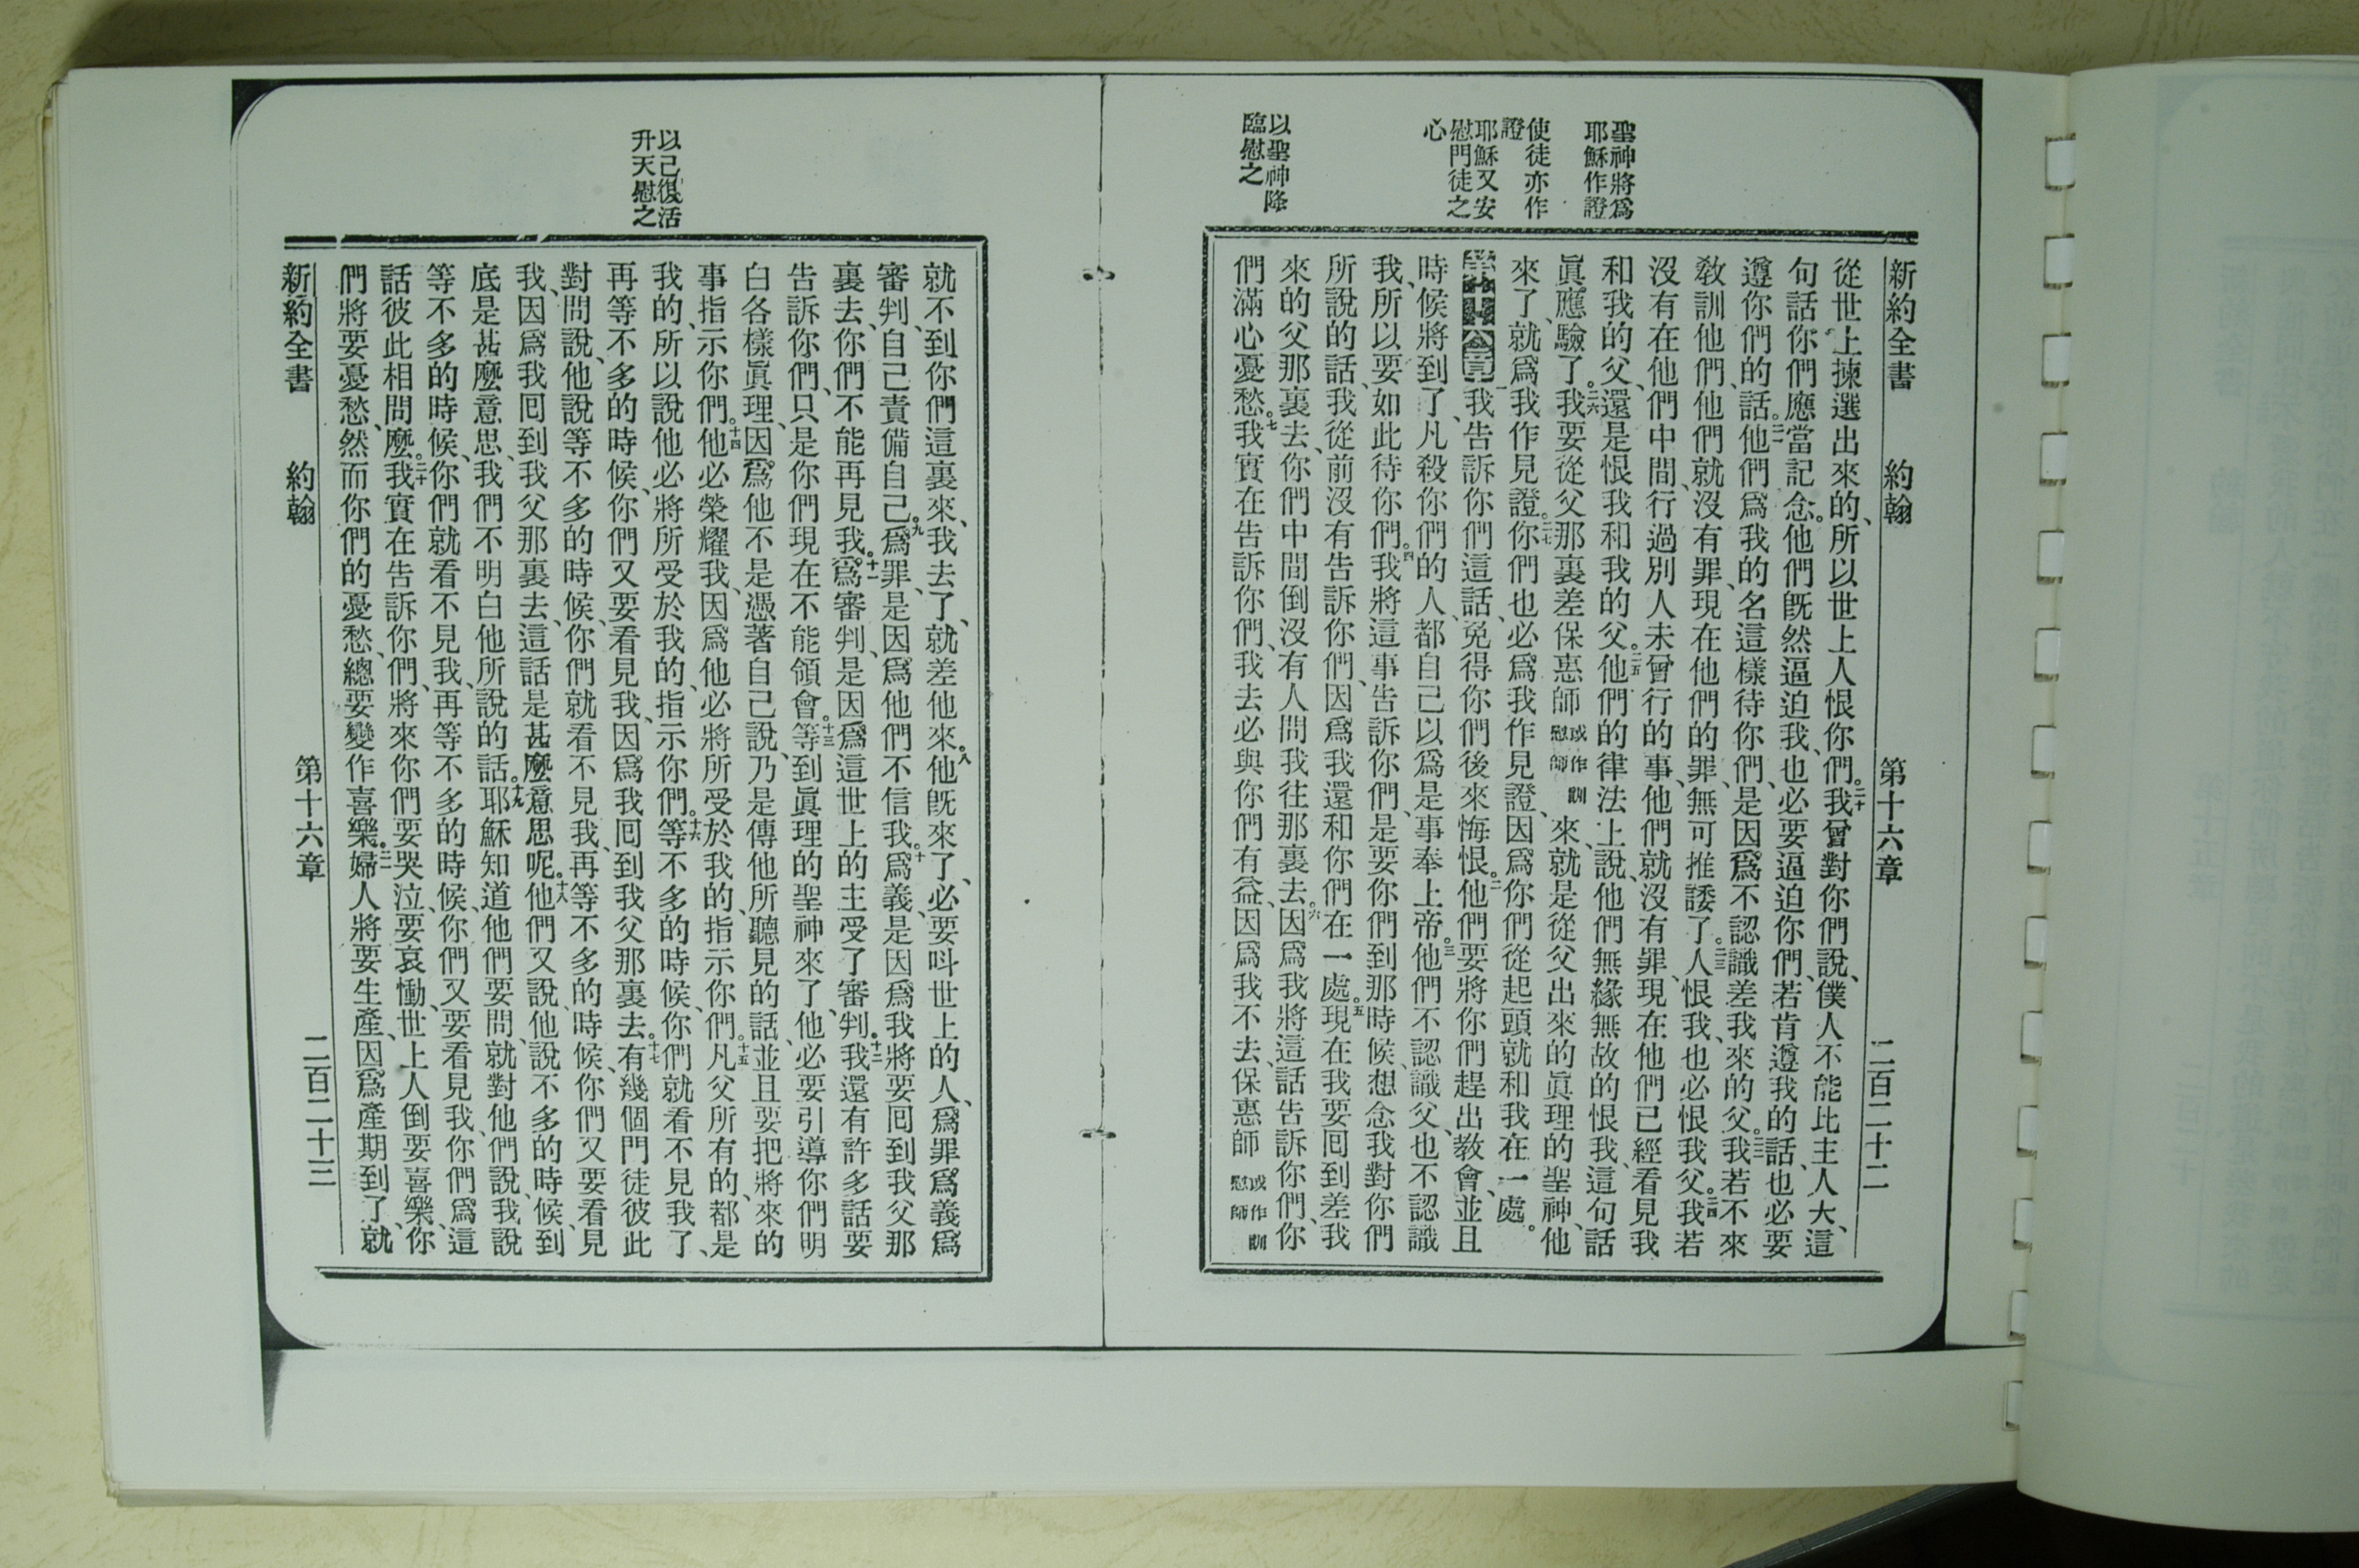 聖神將爲
耶穌作證
使徒亦作
證
耶穌又安
慰門徒之
心
以聖神降
臨慰之
新約全書 約翰 第十六章 二百二十二
從世上揀選出來的、所以世上人恨你們。二十我曾對你們說、僕人不能比主人大、這
句話你們應當記念。他們旣然逼迫我、也必要逼迫你們、若肯遵我的話、也必要
遵你們的話。二一他們爲我的名這樣待你們、是因爲不認識差我來的父。二二我若不來
敎訓他們、他們就沒有罪、現在他們的罪、無可推諉了。二三人恨我、也必恨我父。二四我若
沒有在他們中間、行過別人未曾行的事、他們就沒有罪、現在他們已經看見我
和我的父、還是恨我和我的父。二五他們的律法上說、他們無緣無故的恨我、這句話
眞應驗了。二六我要從父那裏差保惠師或作訓慰師來、就是從父出來的眞理的聖神、他
來了、就爲我作見證。二七你們也必爲我作見證、因爲你們從起頭就和我在一處。
第十六章一我告訴你們這話、免得你們後來悔恨。二他們要將你們趕出教會、並且
時候將到了、凡殺你們的人、都自己以爲是事奉上帝。三他們不認識父、也不認識
我、所以要如此待你們。四我將這事告訴你們、是要你們到那時候、想念我對你們
所說的話、我從前沒有告訴你們、因爲我還和你們在一處。五現在我要囘到差我
來的父那裏去、你們中間倒沒有人問我往那裏去。六因爲我將這話告訴你們、你
們滿心憂愁。七我實在告訴你們、我去必與你們有益、因爲我不去、保惠師或作訓慰師
以己復活
升天慰之
就不到你們這裏來、我去了、就差他來。八他旣來了、必要呌世上的人、爲罪爲義爲
審判、自己責備自己。九爲罪、是因爲他們不信我。十爲義、是因爲我將要囘到我父那
裏去、你們不能再見我。十一爲審判、是因爲這世上的主受了審判。十二我還有許多話要
告訴你們、只是你們現在不能領會。十三等到眞理的聖神來了、他必要引導你們明
白各樣眞理、因爲他不是憑著自己說、乃是傳他所聽見的話、並且要把將來的
事指示你們。十四他必榮耀我、因爲他必將所受於我的、指示你們。十五凡父所有的、都是
我的、所以說他必將所受於我的、指示你們。十六等不多的時候、你們就看不見我了、
再等不多的時候、你們又要看見我、因爲我囘到我父那裏去。十七有幾個門徒彼此
對問說、他說等不多的時候、你們就看不見我、再等不多的時候、你們又要看見
我、因爲我囘到我父那裏去、這話是甚麼意思呢。十八他們又說、他說不多的時候、到
底是甚麼意思、我們不明白他所說的話。十九耶穌知道他們要問、就對他們說、我說
等不多的時候、你們就看不見我、再等不多的時候、你們又要看見我、你們爲這
話彼此相問麼。二十我實在告訴你們、將來你們要哭泣、要哀慟、世上人倒要喜樂、你
們將要憂愁、然而你們的憂愁、總要變作喜樂。二一婦人將要生產、因爲產期到了、就
新約全書 約翰 第十六章 二百二十三